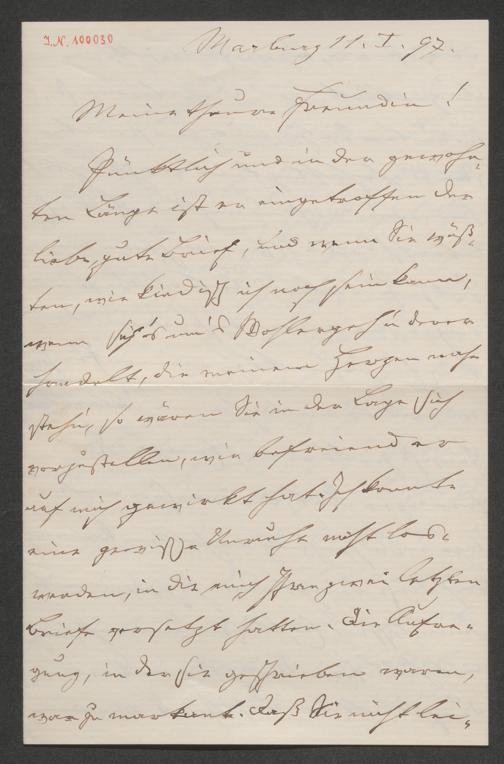 I.N. 100030
Marburg 11. I. 97.
Meine theure Freundin!
Pünktlich und in der gewohn-
ten Länge ist er eingetroffen der
liebe, gute Brief, und wenn Sie wüß-
ten, wie kindisch ich noch sein kann,
wenn sich's um's Wohlergeh'n derer
handelt, die meinem Herzen nahe
steh'n, so wären Sie in der Lage sich
vorzustellen, wie befreiend er
auf mich gewirkt hat. Ich konnte
eine gewisse Unruhe nicht los-
werden, in die mich Ihre zwei letzten
Briefe versetzt hatten. Die Aufre-
gung, in der sie geschrieben waren,
war zu markant. Daß Sie nicht lei-